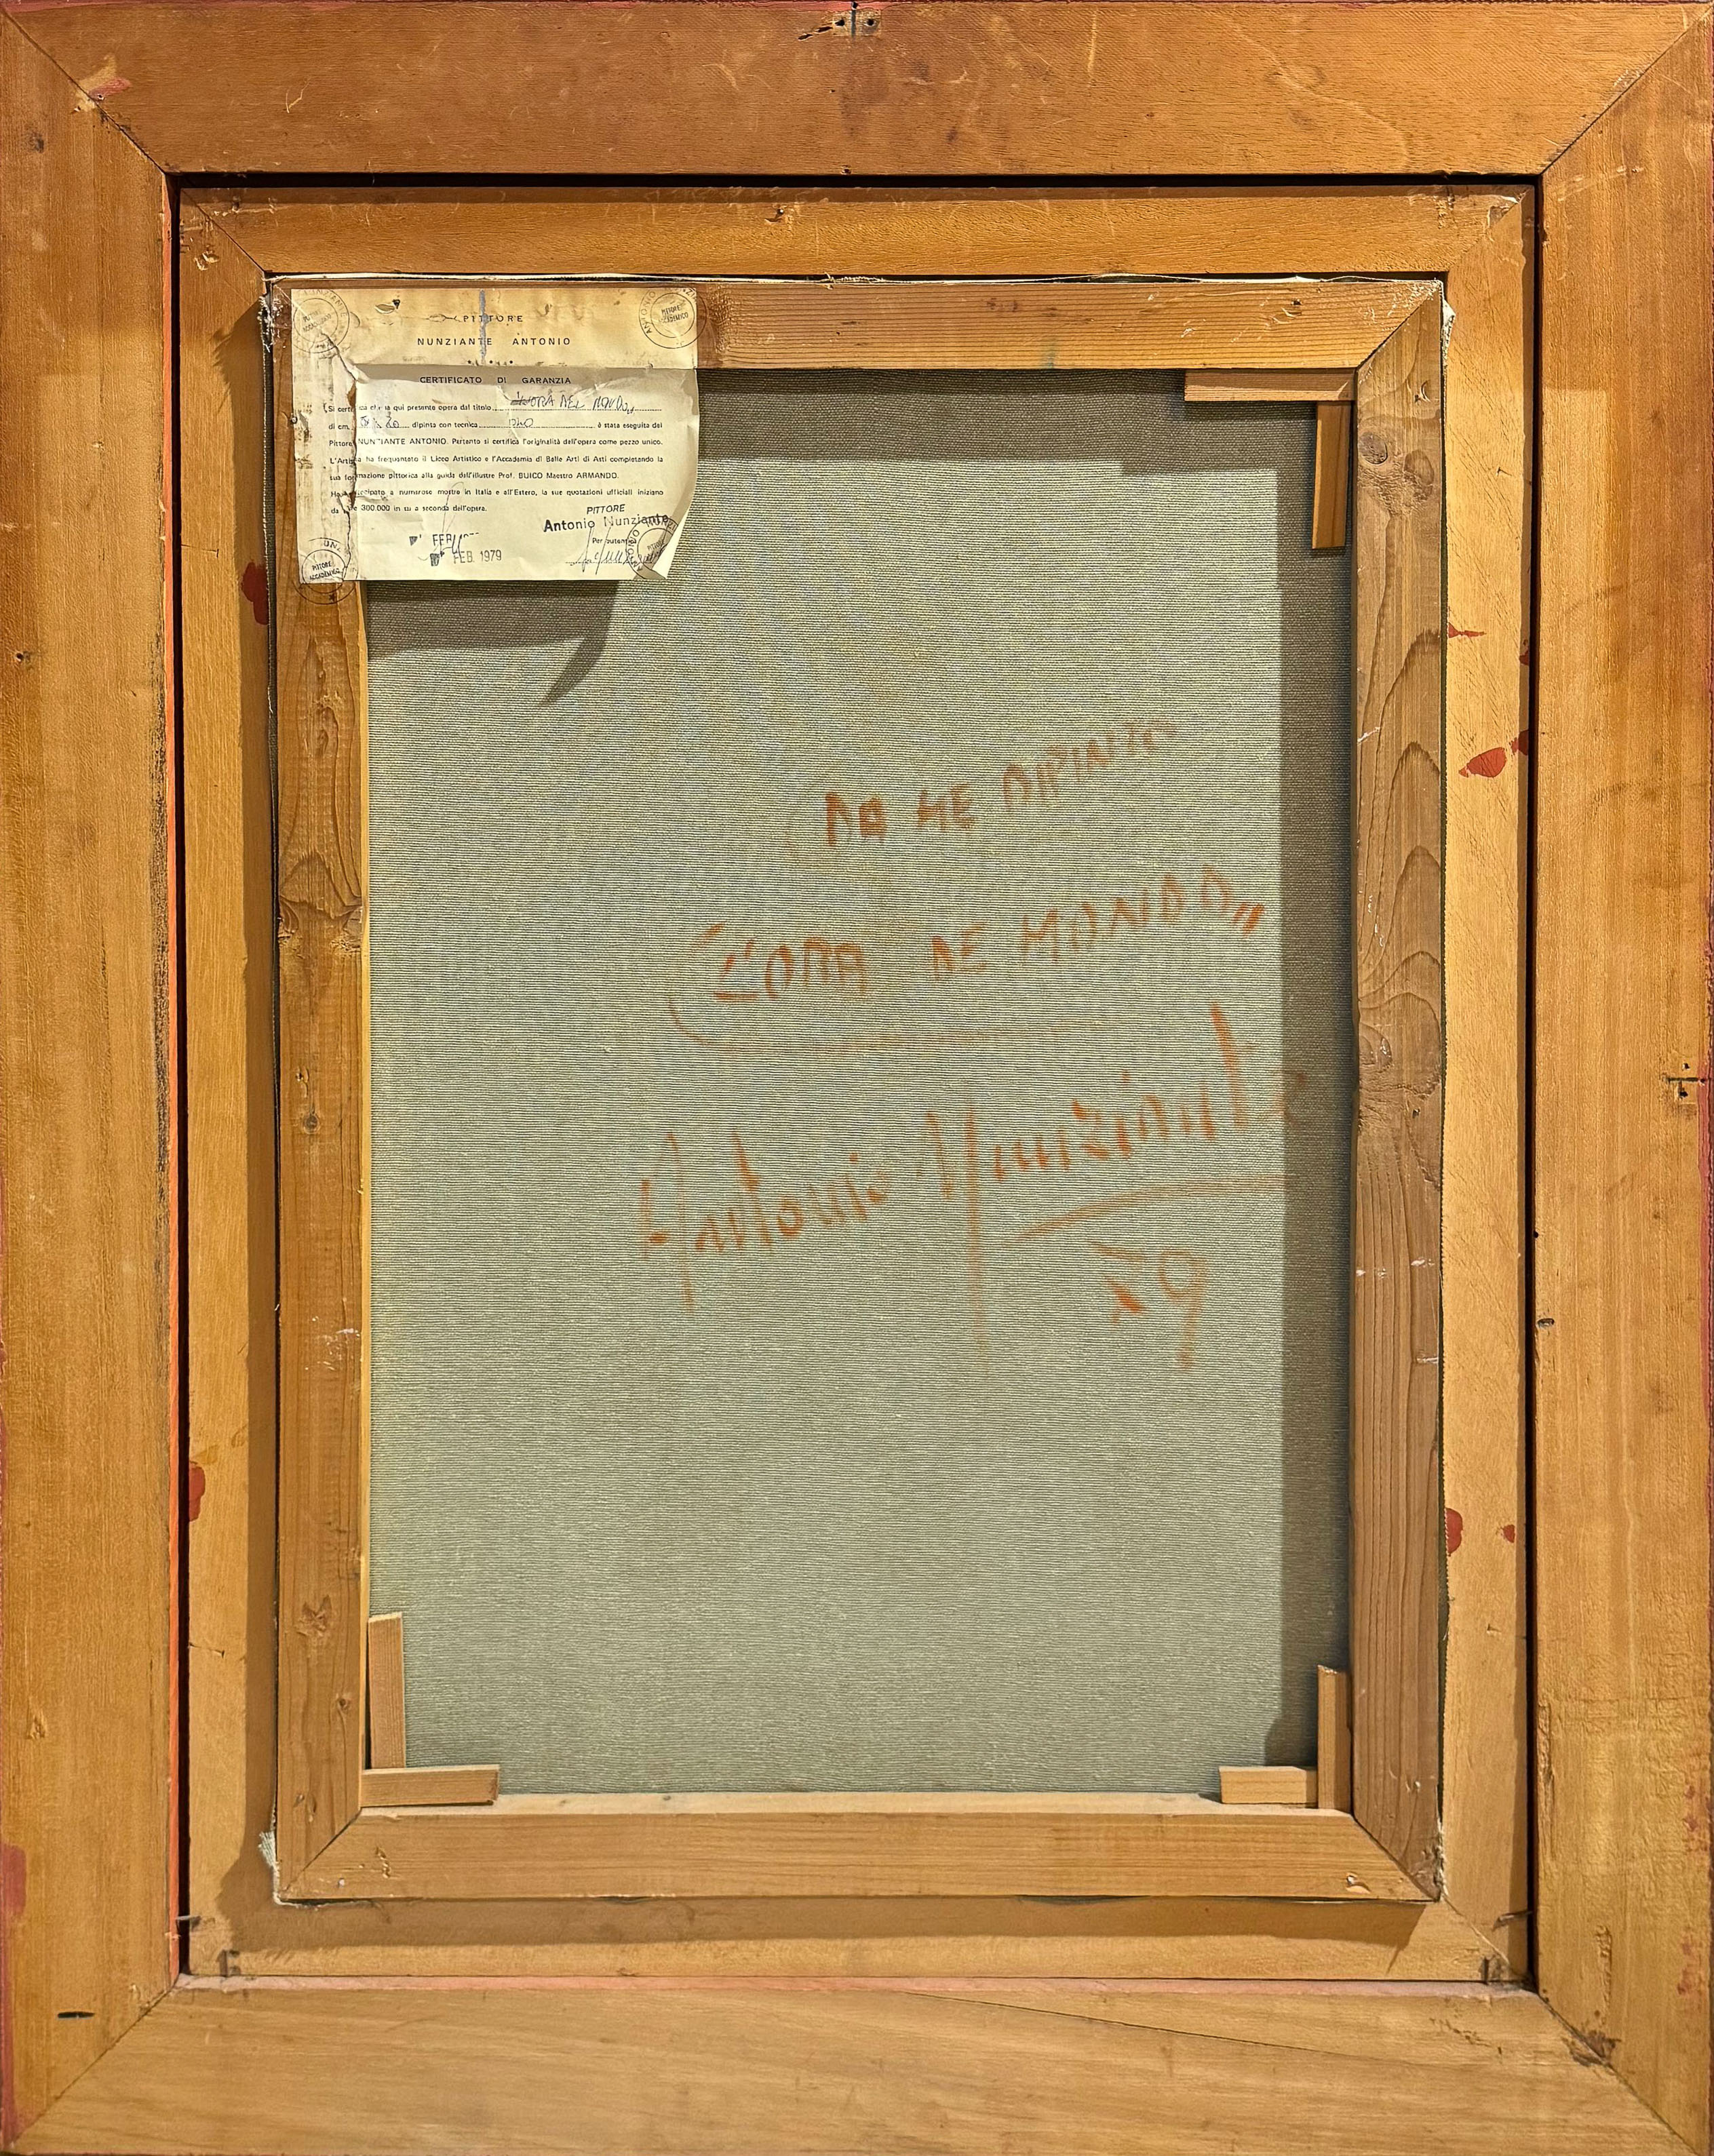 PITTORE
NUNZIANTE ANTONIO
CERTIFICATO DI GARANZIA
Si certifica che la qui presente opera dal titolo L'ORA DEL MONDO„
di cm. dipinta con tecnica è stata eseguita dal
Pittore NUNZIANTE ANTONIO. Pertanto si certifica l'originalità dell'opera come pezzo unico.
L'Artista ha frequentato il Liceo Artistico e l'Accademia di Belle Arti di Asti completando la
sua formazione pittorica alla guida dell'illustre Prof. BUICO Maestro ARMANDO.
Ha partecipato a numerose mostre in Italia e all'Estero, la sue quotazioni ufficiali iniziano
da 300.000 in su a seconda dell'opera.
PITTORE
Antonio Nunziante
Per autentica
FEB
FEB. 1979
PITTORE ACCADEMICO
PITTORE ACCADEMICO
PITTORE ACCADEMICO
PITTORE
DA ME DIPINTO
"L'ORA DE MONDO„
Antonio Nunziante
79